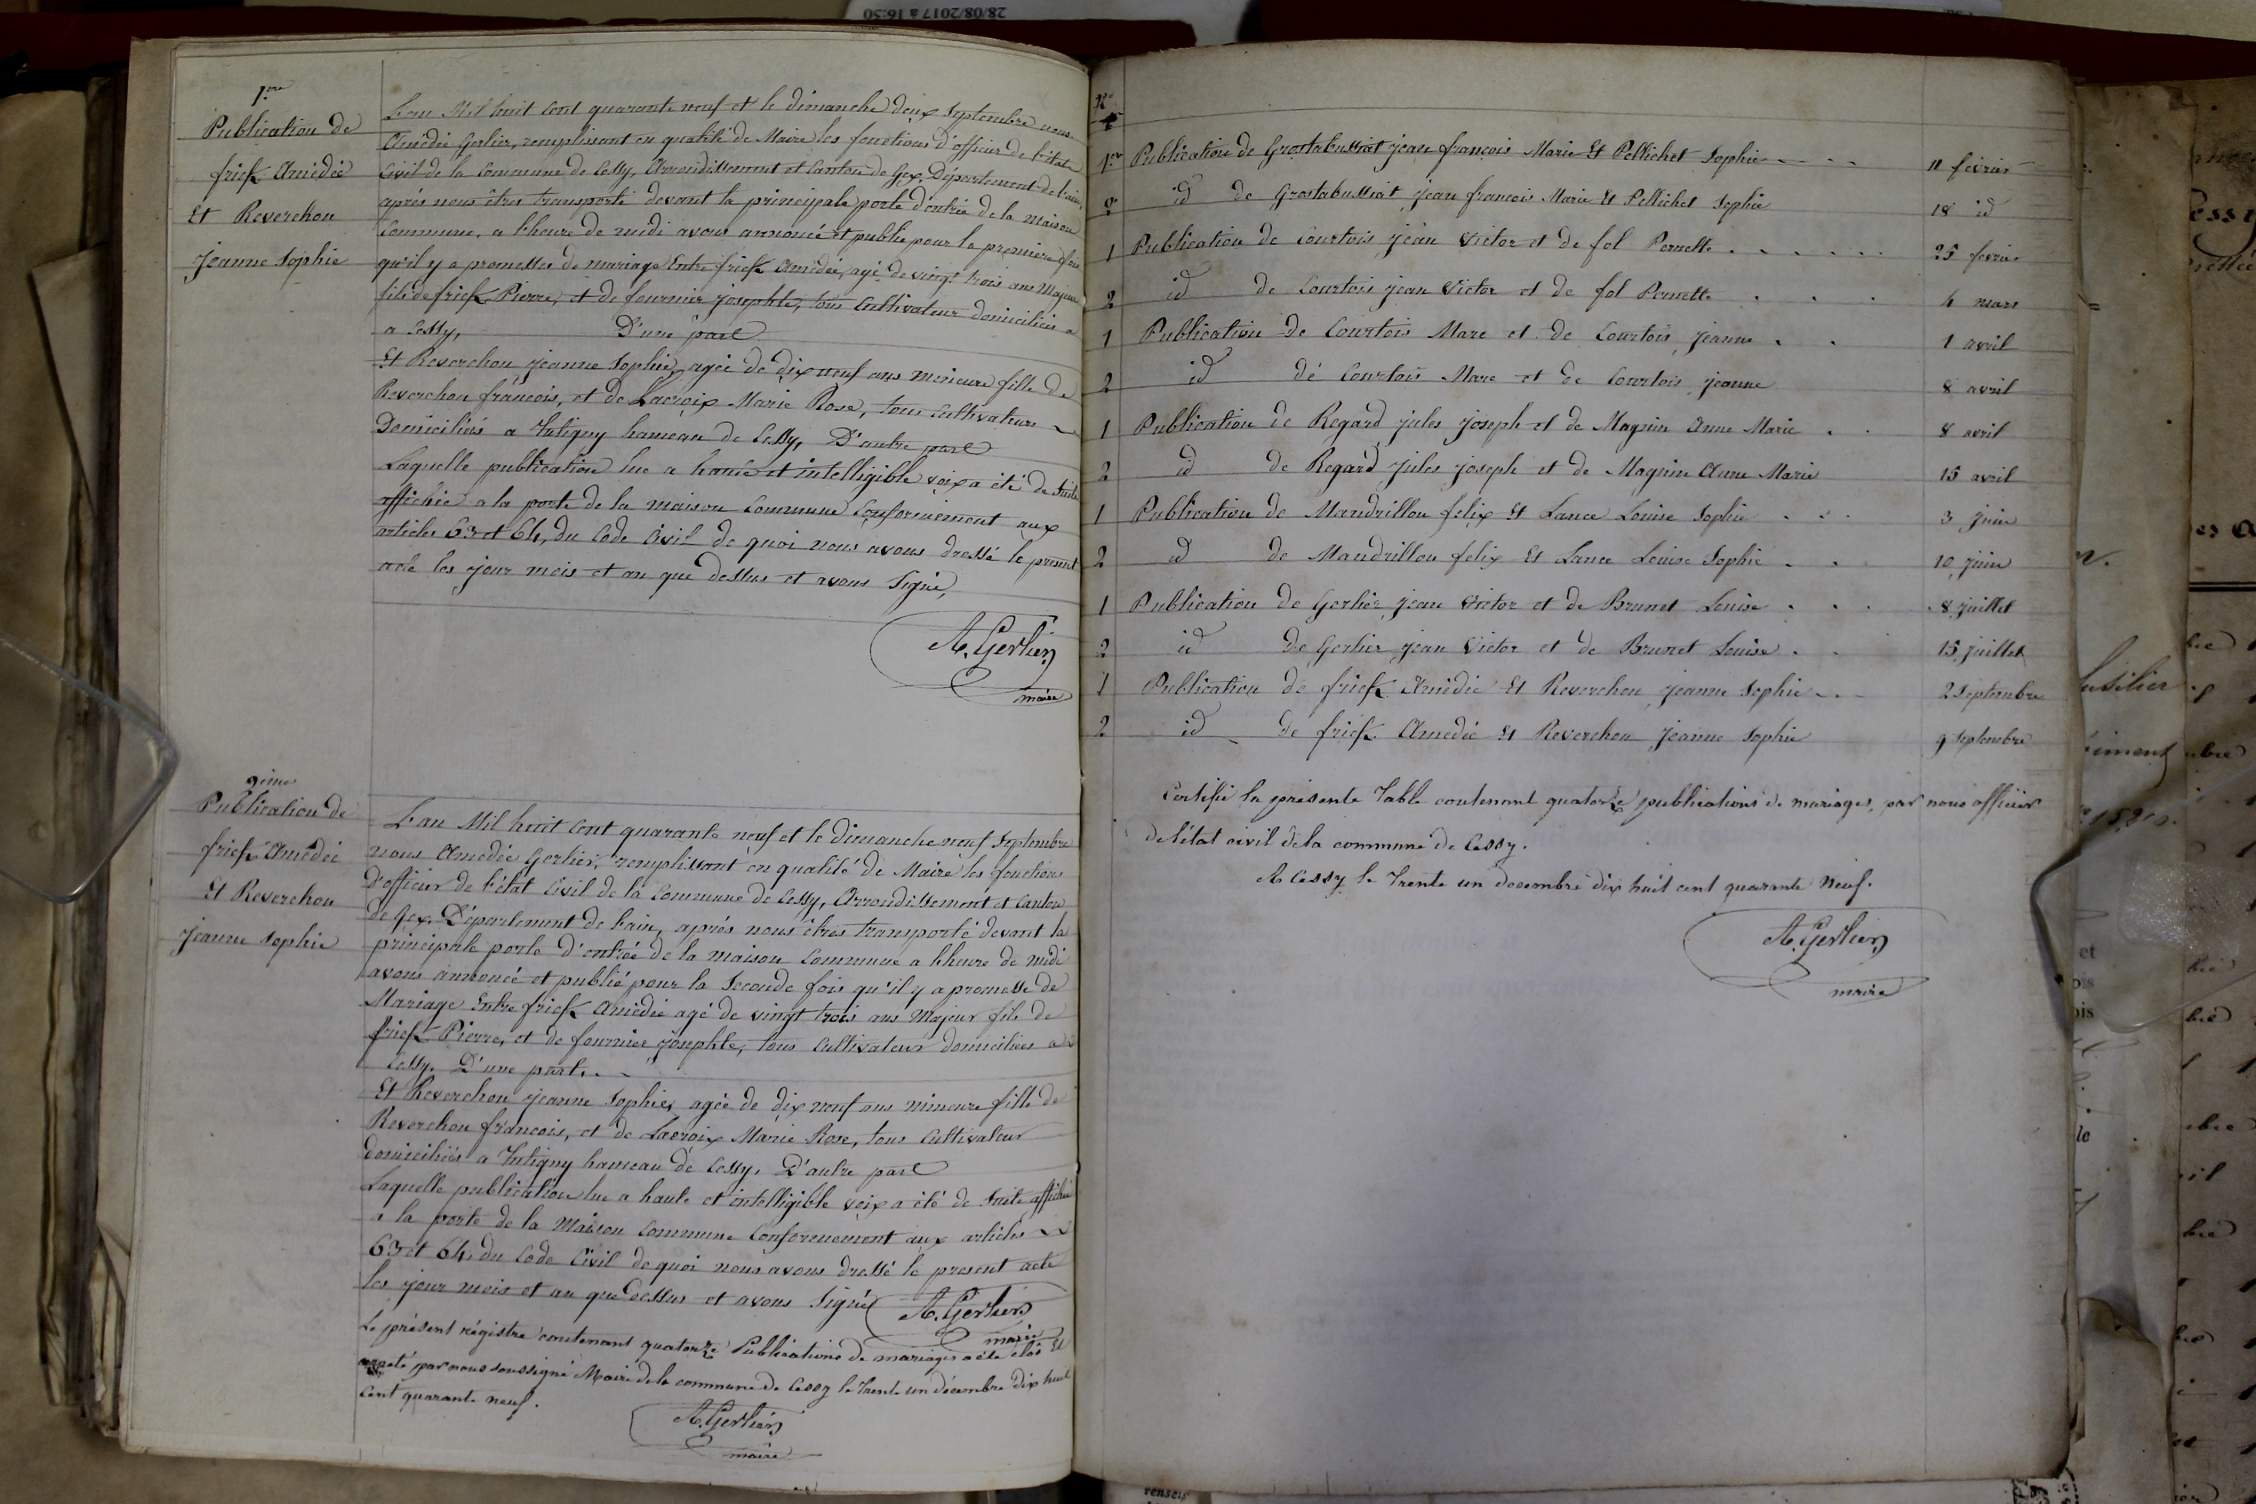 1.re
Publication de
frick Amédée
Et Reverchon
Jeanne Sophie
L'an Mil huit Cent quarante neuf et le dimanche deux Septembre nous
Amédée Gerlier, remplissant en qualité de Maire les fonctions d'officier de l'état
Civil de la Commune de Cessy, Arrondissement et Canton de Gex, Département de l'ain,
après nous êtres transporté devant la principale porte d'entrée de la maison
Commune, a l'heure de midi avons annoncé et publié pour la première fois
qu'il y a promesses de mariage Entre frick Amédée, agé de vingt trois ans Majeur
fils de frick Pierre, et de fournier josephte, tous Cultivateur domiciliés a
a Cessy, D'une part
Et Reverchon jeanne Sophie, agée de dix neuf ans mineure fille de
Reverchon françois, et de Lacroix Marie Rose, tous Cultivateurs
Domiciliés a Tutigny hameau de Cessy, D'autre part
Laquelle publication lue a haute et intelligible voix a été de Suite
affichée a la porte de la maison Commune Conformement aux
articles 63 et 64, du Code Civil de quoi nous avons dressé le present
acte les jour mois et an que dessus et avons Signé,
A. Gerlier
maire
2ème
Publication de
frick Amédée
Et Reverchon
Jeanne Sophie
L'an Mil huit Cent quarante neuf et le dimanche neuf Septembre
nous Amédée Gerlier, remplissant en qualité de Maire les fonctions
D'officier de l'état Civil de la Commune de Cessy, Arrondissement et Canton
de Gex, Département de l'ain, après nous êtres transporté devant la
principale porte d'entrée de la maison Commune a l'heure de midi
avons annoncé et publié pour la Seconde fois qu'il y a promesse de
Mariage Entre frick Amédée agé de vingt trois ans Majeur fils de
frick Pierre, et de fournier josephte, tous Cultivateur domiciliés a
Cessy. D'une part.
Et Reverchon jeanne Sophie, agée de dix neuf ans mineure fille de
Reverchon francois, et de Lacroix Marie Rose, tous Cultivateur
domiciliés a Tutigny hameau de Cessy. D'autre part
Laquelle publication lue a haute et intelligible voix a été de Suite affichée
a la porte de la Maison Commune Conformement aux articles
63 et 64, du Code Civil de quoi nous avons dressé le present acte
les jour mois et an que Dessus et avons Signé A. Gerlier
maire
Le présent régistre contenant quatorze Publications de mariages a été clos Et
arreté par nous soussigné Maire de la commune de Cessy le trente un décembre dix huit
cent quarante neuf.
A. Gerlier
maire
N°
1er Publication de Grostabussiat jean françois Marie Et Pellichet Sophie 11 février
2 id de Grostabussiat jean francois Marie Et Pellichet Sophie 18 id
1 Publication de Courtois jean Victor et de fol Pernette 25 fevrier
2 id de Courtois jean Victor et de fol Pernette 4 mars
1 Publication de Courtois Marc et de Courtois jeanne 1 avril
2 id de Courtois Marc et de Courtois jeanne 8 avril
1 Publication de Regard jules joseph et de Magnin Anne Marie 8 avril
2 id de Regard jules joseph et de Magnin Anne Marie 15 avril
1 Publication de Mandrillon felix Et Lance Louise Sophie 3 juin
2 id de Mandrillon felix Et Lance Louise Sophie 10 juin
1 Publication de Gerlier jean Victor et de Brunet Louise 8 juillet
2 id de Gerlier jean Victor et de Brunet Louise 15 juillet
1 Publication de frick Amédée Et Reverchon jeanne Sophie 2 Septembre
2 id de frick Amédée Et Reverchon jeanne Sophie 9 Septembre
Certifié la présente Table contenant quatorze publications de mariages, par nous officier
de l'état civil de la commune de Cessy.
A Cessy le Trente un decembre dix huit cent quarante Neuf.
A. Gerlier
maire
28/08/2017 à 16:50